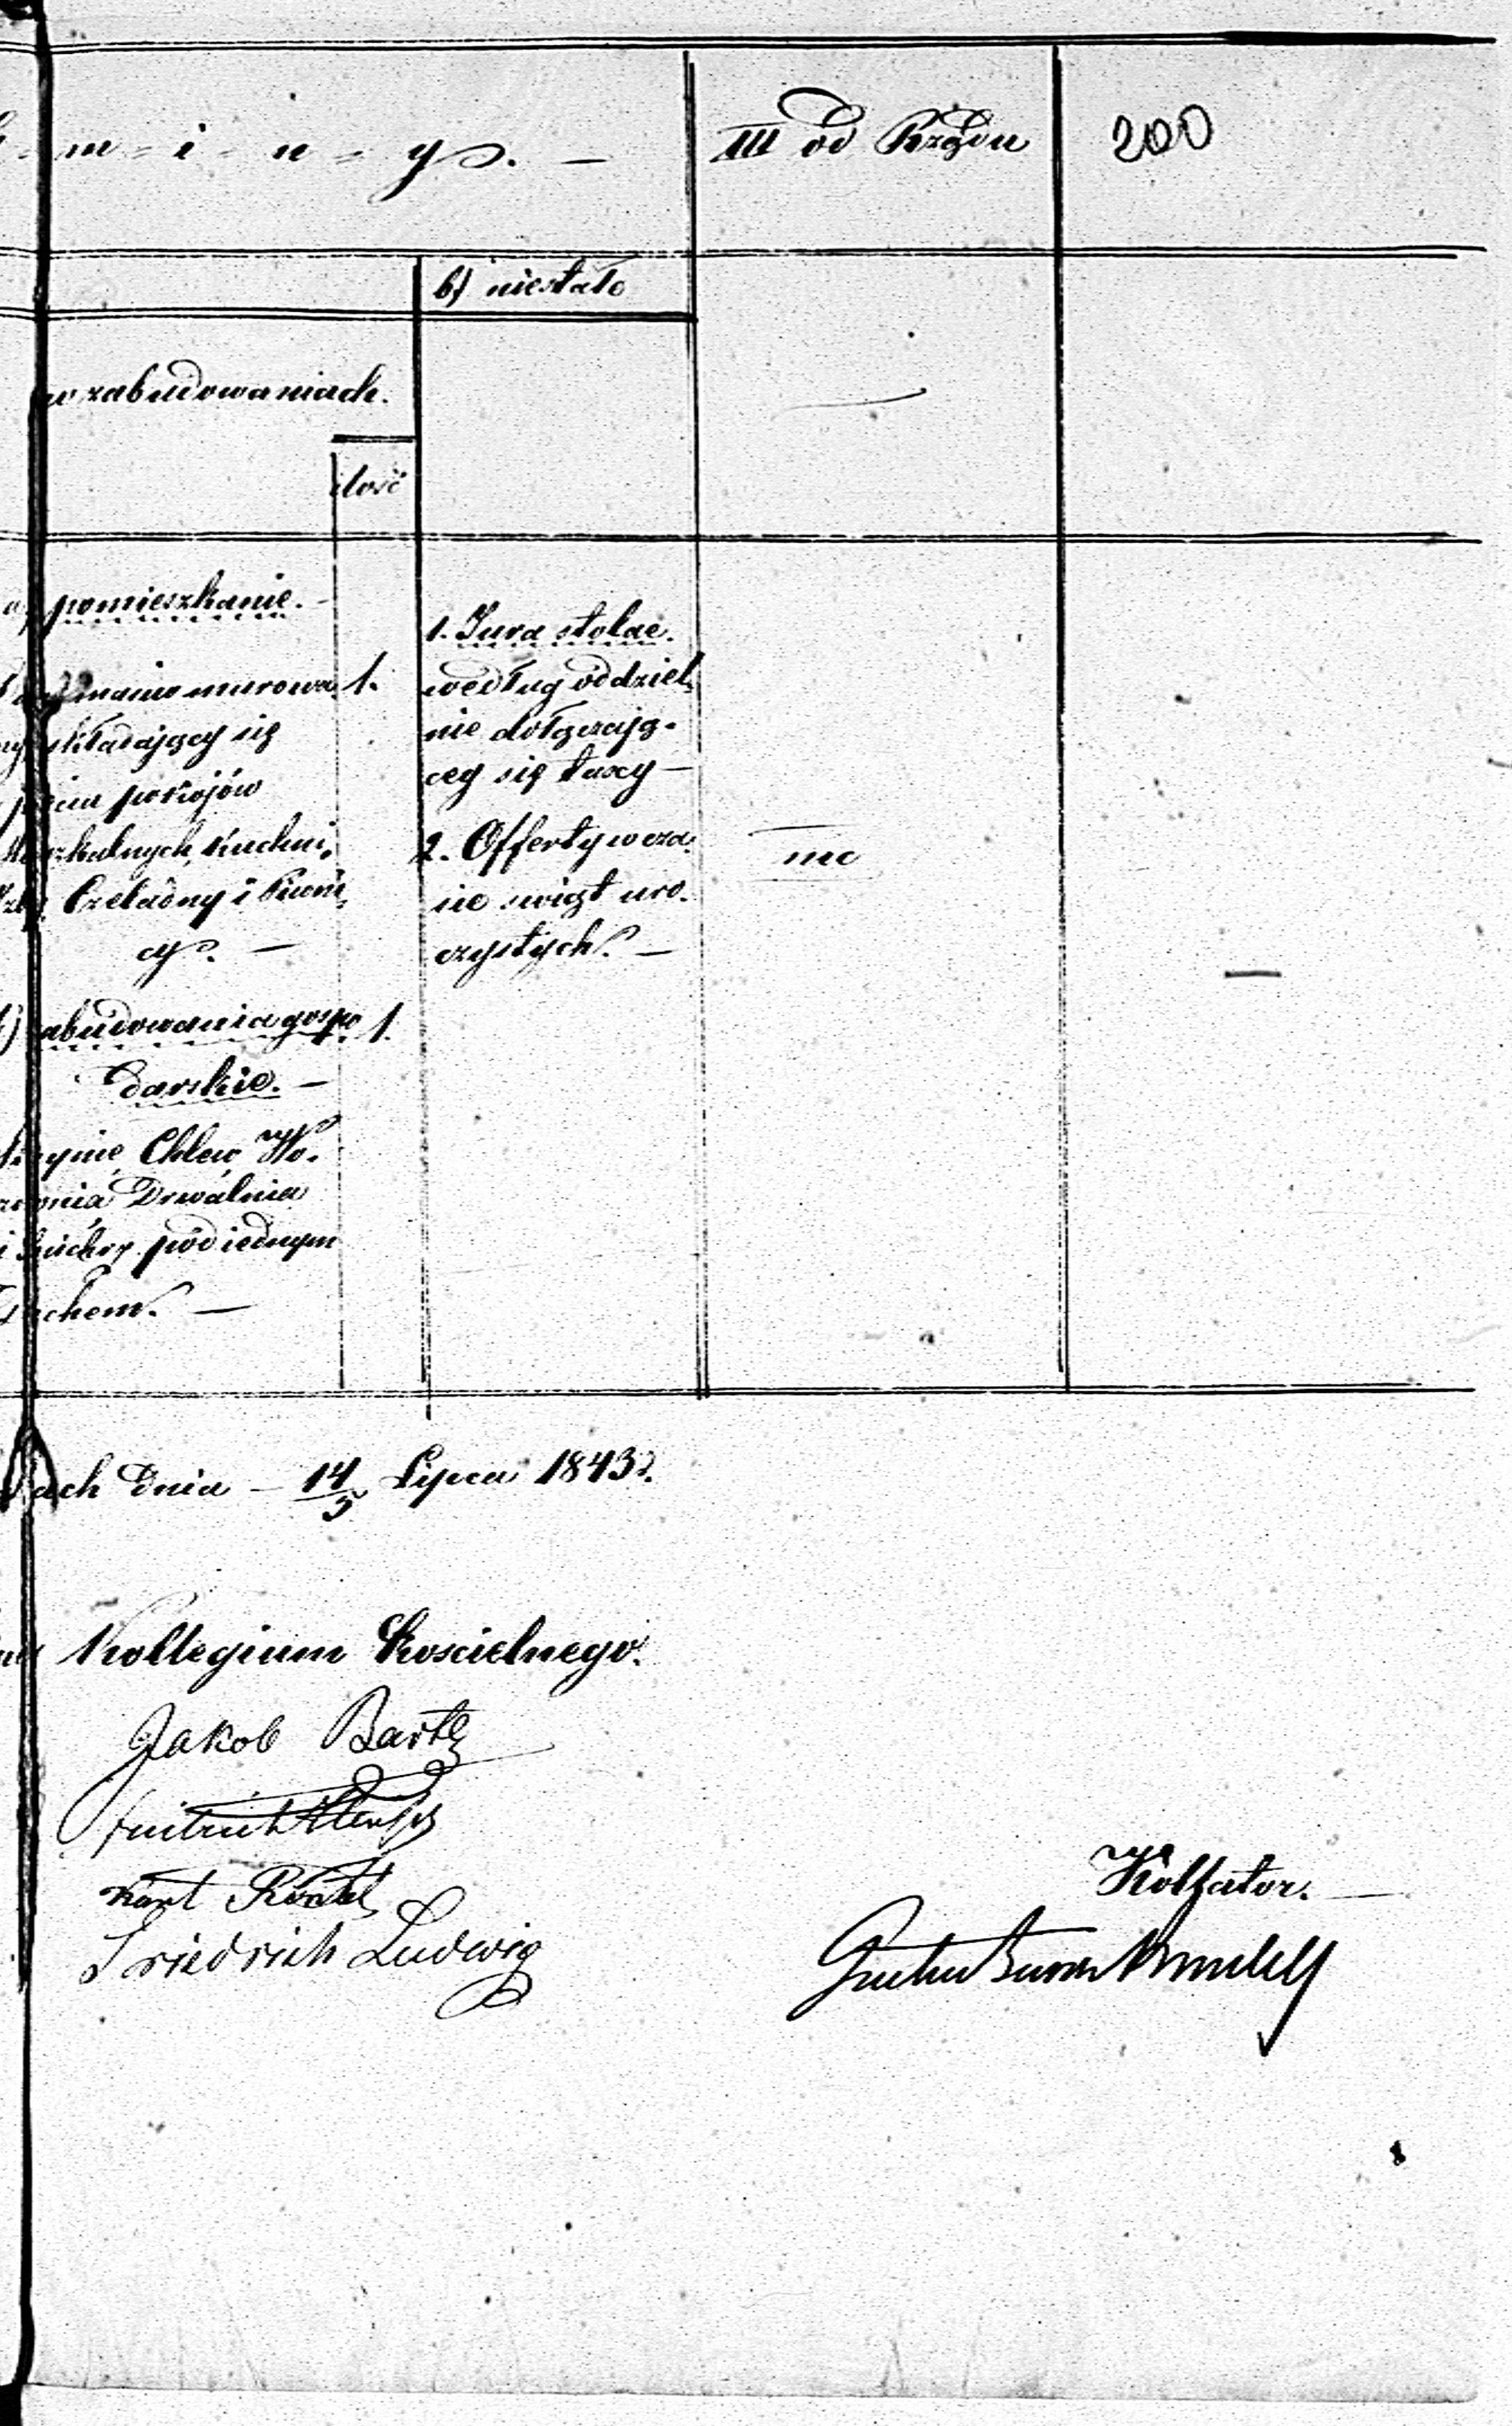 m = i - n = y. —
III od Rządu
200
b) niestałe
w zabudowaniach.
ilość
a) pomieszkanie. —
murowa 1.
składający się
pokojów
Kuchni,
Czeladny i Piwni,
cy. —
zabudowania gospo 1.
darskie. —
Chlew, Wo.
zownia, Drwalnia
i pod iednym
Dachem. —
1. Jura stolae.
według oddziel,
nie dołączają-
cey się taxy —
2. Offerty w cza
sie swiąt uro.
czystych. —
nic
—
ach Dnia — 14/5 Lipca 1843 r.
Kollegium Koscielnego.
Jakob Bartz
Friedrich Ludwig
Kollator. —